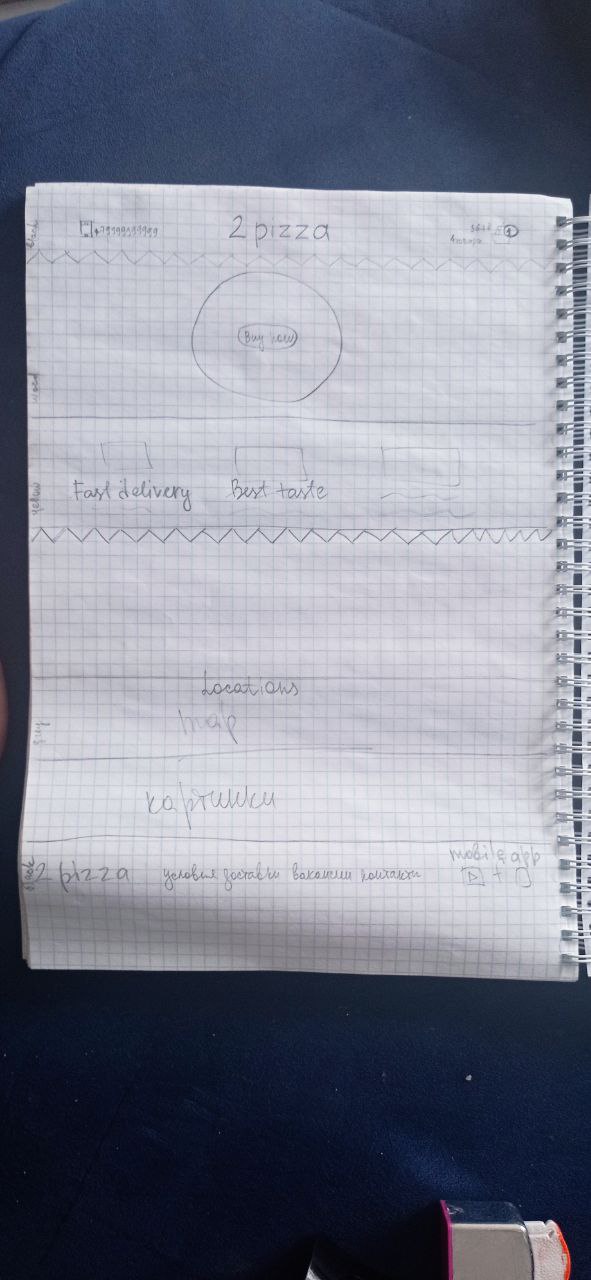 black
+79999999999
2 pizza
Buy now
wood
yellow
Fast delivery
Best taste
Locations
map
grey
картинки
black
2 pizza
условия доставки вакансии контакты
mobile app